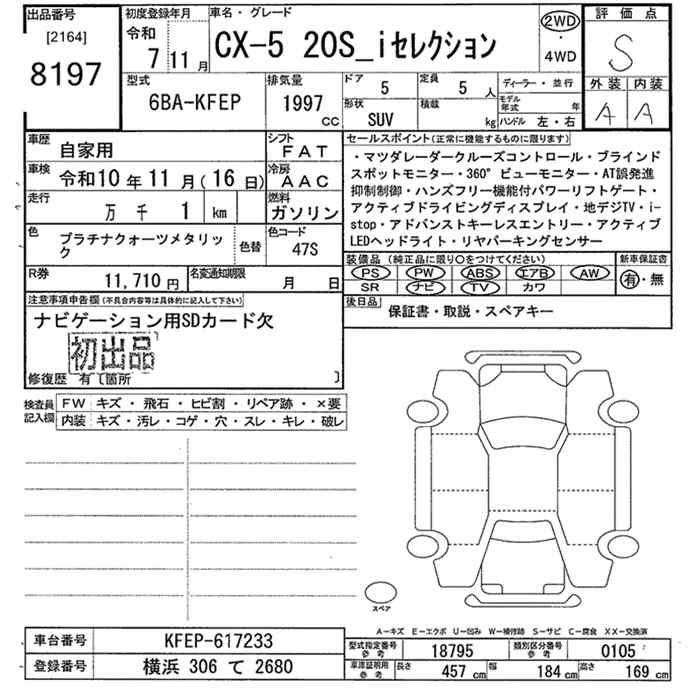 出品番号
[2164]
8197
初度登録年月
令和
7 11 月
車名・グレード
CX-5 20S_iセレクション
2WD
・
4WD
評価点
S
外装 内装
A A
型式
6BA-KFEP
排気量
1997
CC
ドア
5
定員
5 人
形状
SUV
積載
kg
ディーラー・並行
モデル年式 年
ハンドル 左・右
車歴
自家用
シフト
FAT
車検
令和10 年 11 月 (16 日)
冷房
AAC
走行
万 千 1 km
燃料
ガソリン
色
プラチナクォーツメタリック
色替
色コード
47S
R券
11,710 円
名変通知期限
月 日
セールスポイント(正常に機能するものに限ります)
・マツダレーダークルーズコントロール・ブラインド
スポットモニター・360°ビューモニター・AT誤発進
抑制制御・ハンズフリー機能付パワーリフトゲート・
アクティブドライビングディスプレイ・地デジTV・i-
stop・アドバンストキーレスエントリー・アクティブ
LEDヘッドライト・リヤパーキングセンサー
装備品 (純正品に限り○をつけてください)
PS PW ABS エアB AW
SR ナビ TV カワ
新車保証書
有・無
後日品
保証書・取説・スペアキー
注意事項申告欄(不具合内容等は具体的に記入して下さい)
ナビゲーション用SDカード欠
初出品
修復歴 有〔箇所 〕
検査員
記入欄
FW キズ・飛石・ヒビ割・リペア跡・×要
内装 キズ・汚レ・コゲ・穴・スレ・キレ・破レ
スペア
A-キズ E-エクボ U-凹み W-補修跡 S-サビ C-腐食 XX-交換済
車台番号 KFEP-617233
登録番号 横浜 306 て 2680
型式指定番号
参考
18795
類別区分番号
参考
0105
車庫証明用
参考
長さ 457 cm 幅 184 cm 高さ 169 cm